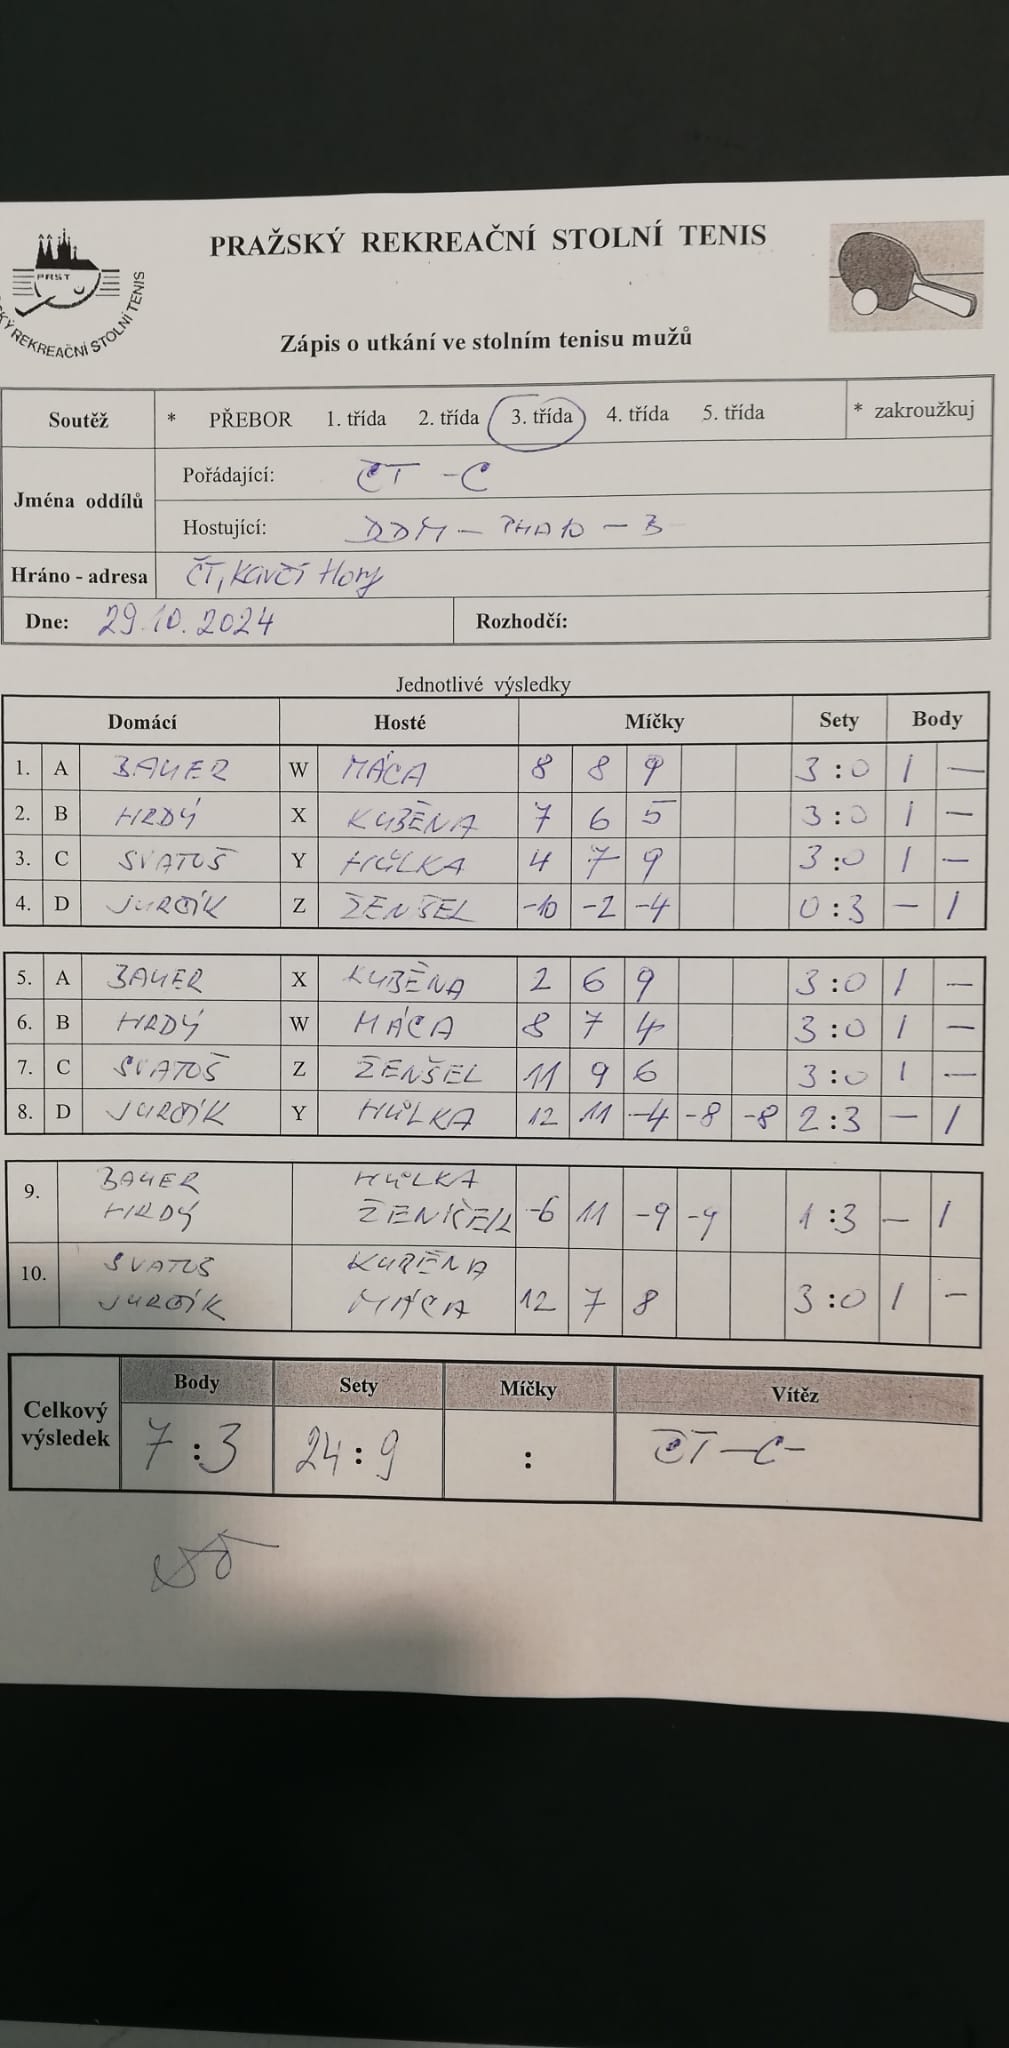 PRAŽSKÝ REKREAČNÍ STOLNÍ TENIS
PRST
KÝ REKREAČNÍ STOLNÍ TENIS
Zápis o utkání ve stolním tenisu mužů
Soutěž * PŘEBOR 1. třída 2. třída 3. třída 4. třída 5. třída * zakroužkuj
Jména oddílů
Pořádající: ČT - C
Hostující: DDM - PHA10 - B
Hráno - adresa ČT, Kavčí Hory
Dne: 29.10.2024 Rozhodčí:
Jednotlivé výsledky
Domácí Hosté Míčky Sety Body
1. A BAUER W MÁCA 8 8 9 3:0 1 -
2. B HRDÝ X KUBĚNA 7 6 5 3:0 1 -
3. C SVATOŠ Y HŮLKA 4 7 9 3:0 1 -
4. D JURČÍK Z ŽENŠEL -10 -2 -4 0:3 - 1
5. A BAUER X KUBĚNA 2 6 9 3:0 1 -
6. B HRDÝ W MÁCA 8 7 4 3:0 1 -
7. C SVATOŠ Z ŽENŠEL 11 9 6 3:0 1 -
8. D JURČÍK Y HŮLKA 12 11 -4 -8 -8 2:3 - 1
9. BAUER HŮLKA
HRDÝ -6 11 -9 -9 1:3 - 1
10. SVATOŠ KUBĚNA
JURČÍK MÁCA 12 7 8 3:0 1 -
Celkový výsledek
Body Sety Míčky Vítěz
7:3 24:9 : ČT-C-